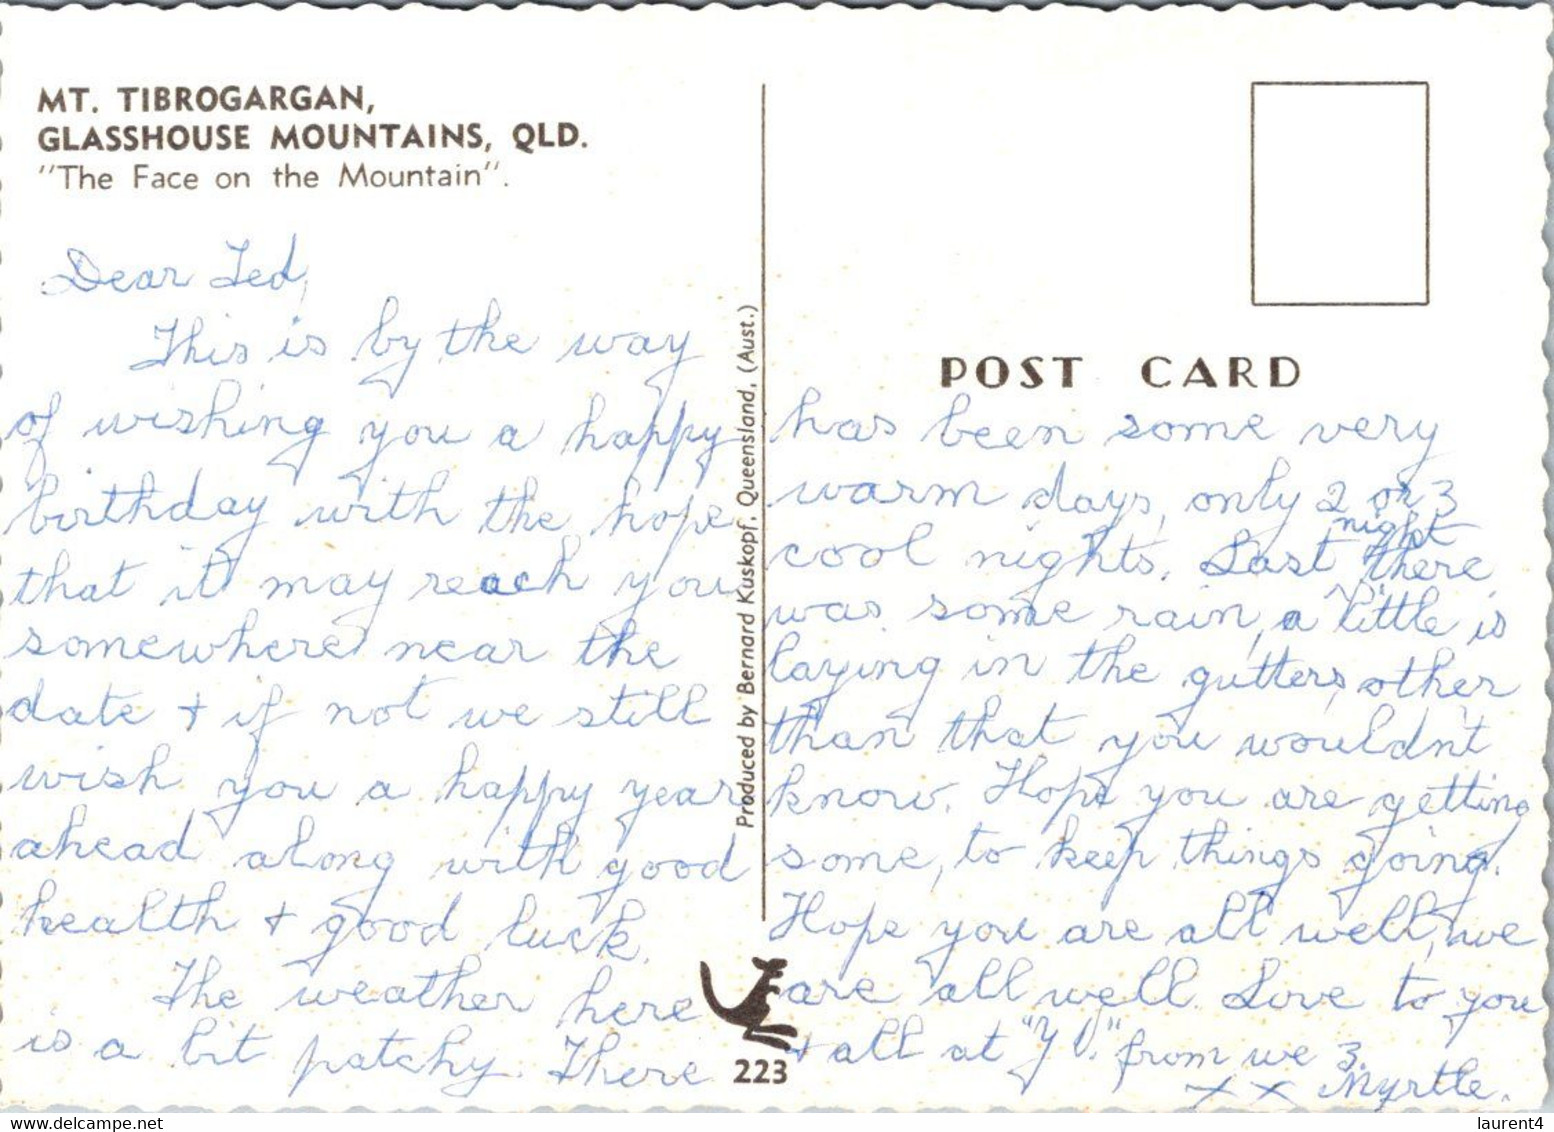 MT. TIBROGARGAN,
GLASSHOUSE MOUNTAINS, QLD.
"The Face on the Mountain".
Dear Ted,
This is by the way
of wishing you a happy
birthday with the hope
that it may reach you
somewhere near the
date + if not we still
wish you a happy year
ahead along with good
health + good luck.
The weather here
is a bit patchy. There
Produced by Bernard Kuskopf, Queensland, (Aust.)
223
POST CARD
has been some very
warm days, only 2 or 3
cool nights. Last night there
was some rain, a little is
laying in the gutters, other
than that you wouldn't
know. Hope you are getting
some, to keep things going.
Hope you are all well, we
are all well. Love to you
+ all at "Y V." from we 3.
x x Myrtle.
delcampe.net
laurent4